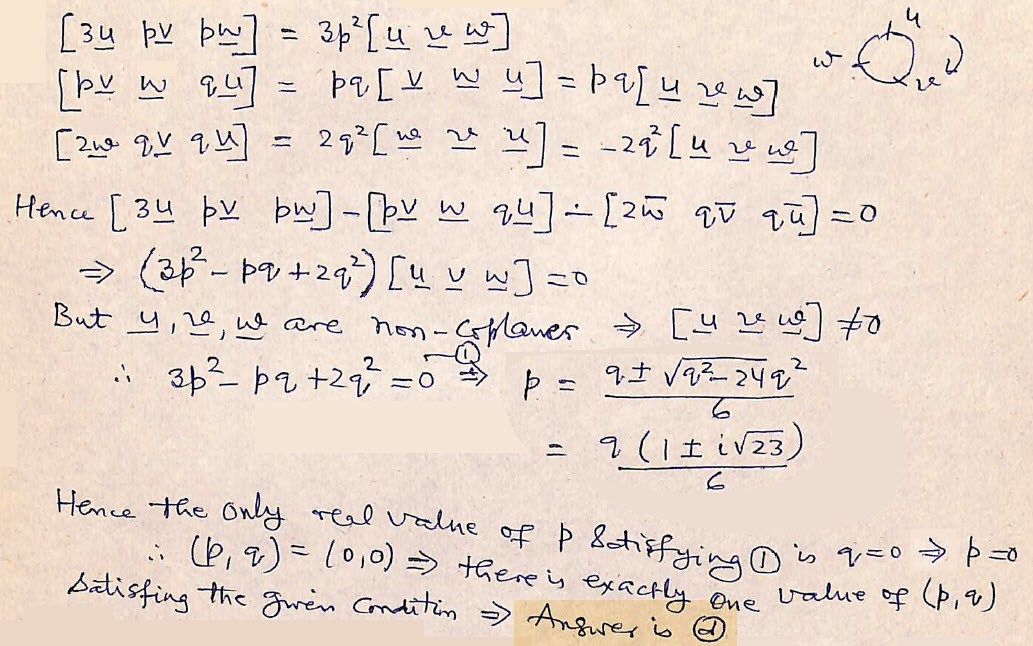 [3u pv pw] = 3p²[u v w]
[pv w qu] = pq[v w u] = pq[u v w]
u
w
v
[2w qv qu] = 2q²[w v u] = -2q²[u v w]
Hence [3u pv pw] - [pv w qu] - [2w̄ qv̄ qū] = 0
⇒ (3p² - pq + 2q²) [u v w] = 0
But u, v, w are non-coplaner ⇒ [u v w] ≠ 0
∴ 3p² - pq + 2q² = 0 ① ⇒ p = q ± √q² - 24q² / 6
= q (1 ± i√23) / 6
Hence the only real value of p satisfying ① is q = 0 ⇒ p = 0
∴ (p, q) = (0,0) ⇒ there is exactly one value of (p, q)
Satisfing the given Conditin ⇒ Answer is ⓓ